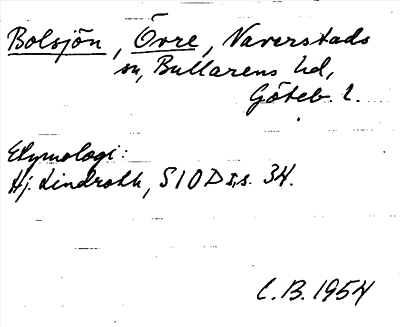 Bolsjön, Övre, Naverstads
sn, Bullarens hd,
Göteb. l.
Etymologi:
Hj. Lindroth, SIOD s. 34.
C.B. 1954